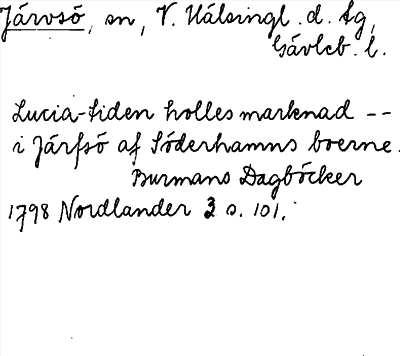 Järvsö, sn, V. Hälsingl. d. tg,
Gävleb. l.
Lucia-tiden holles marknad --
i Järfsö af Söderhamns boerne.
Burmans Dagböcker
1798 Nordlander 3 s. 101.